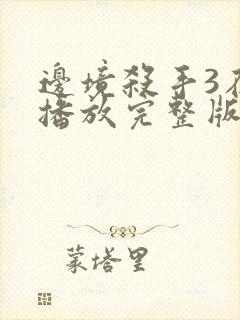 邊境殺手3在
播放完整版
蒙塔里